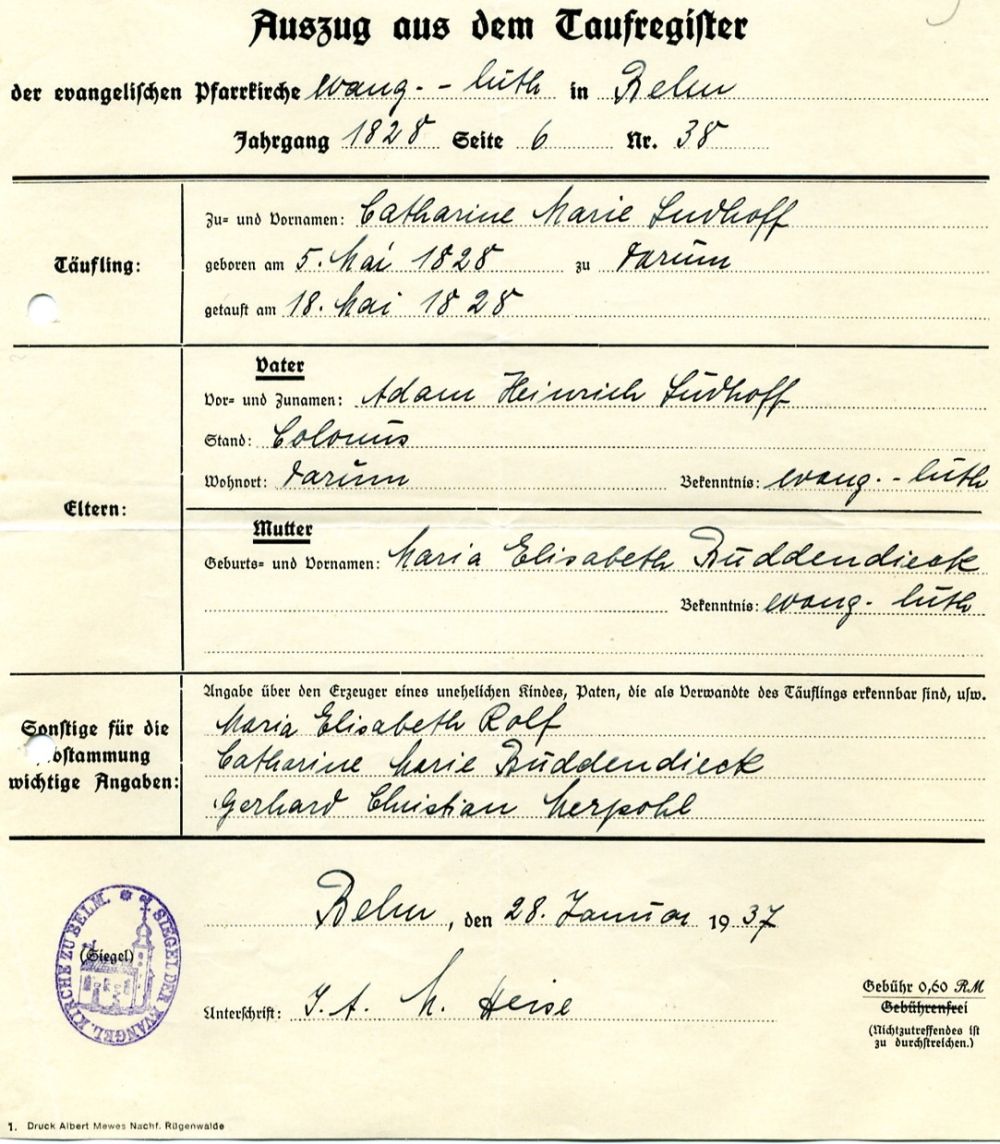 Auszug aus dem Taufregister
der evangelischen Pfarrkirche evang. - luth in Belm
Jahrgang 1828 Seite 6 Nr. 38
Täufling:
Zu- und Vornamen: Catharine Marie Sudhoff
geboren am 5. Mai 1828 zu Darum
getauft am 18. Mai 1828
Eltern:
Vater
Vor- und Zunamen: Adam Heinrich Sudhoff
Stand: Colonus
Wohnort: Darum Bekenntnis: evang. - luth
Mutter
Geburts- und Vornamen: Maria Elisabeth Buddendieck
Bekenntnis: evang. luth
Sonstige für die
bstammung
wichtige Angaben:
Angabe über den Erzeuger eines unehelichen Kindes, Paten, die als Verwandte des Täuflings erkennbar sind, usw.
Maria Elisabeth Rolf
Catharine Marie Buddendieck
Gerhard Christian Merpohl
Belm, den 28. Januar 1937
(Siegel)
SIEGEL DER EVANGEL. KIRCHE ZU BELM.
Unterschrift: I. A. M. Heise
Gebühr 0,60 RM
Gebührenfrei
(Nichtzutreffendes ist
zu durchstreichen.)
1. Druck Albert Mewes Nachf. Rügenwalde